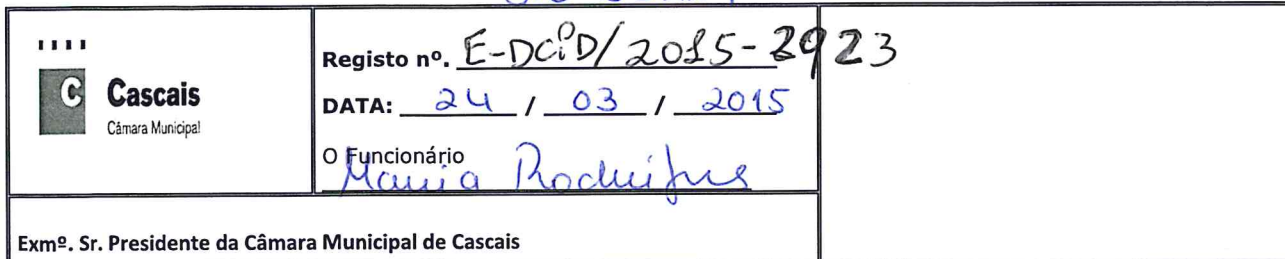 C Cascais
Câmara Municipal
Registo nº. E-DCPD/2015-2923
DATA: 24 / 03 / 2015
O Funcionário
Maria Rodrigues
Exmº. Sr. Presidente da Câmara Municipal de Cascais